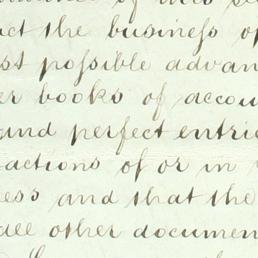 act the business of
st possible advan
er books of accou
and perfect entri
actions of or in
ess and that the
all other documen